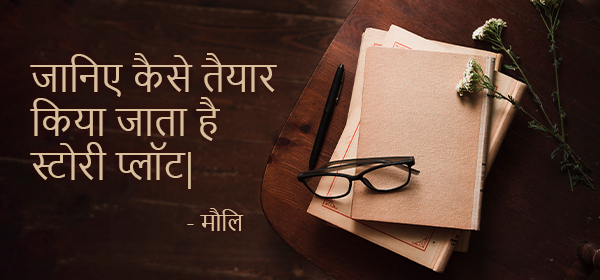 जानिए कैसे तैयार
किया जाता है
स्टोरी प्लॉट|
- मौलि